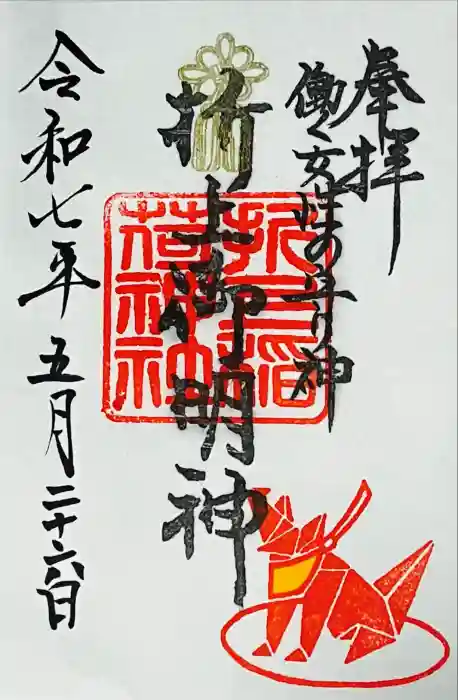 奉拝
働く女性の守り神
折上御明神
折上稲
荷神社
令和七年五月二十六日